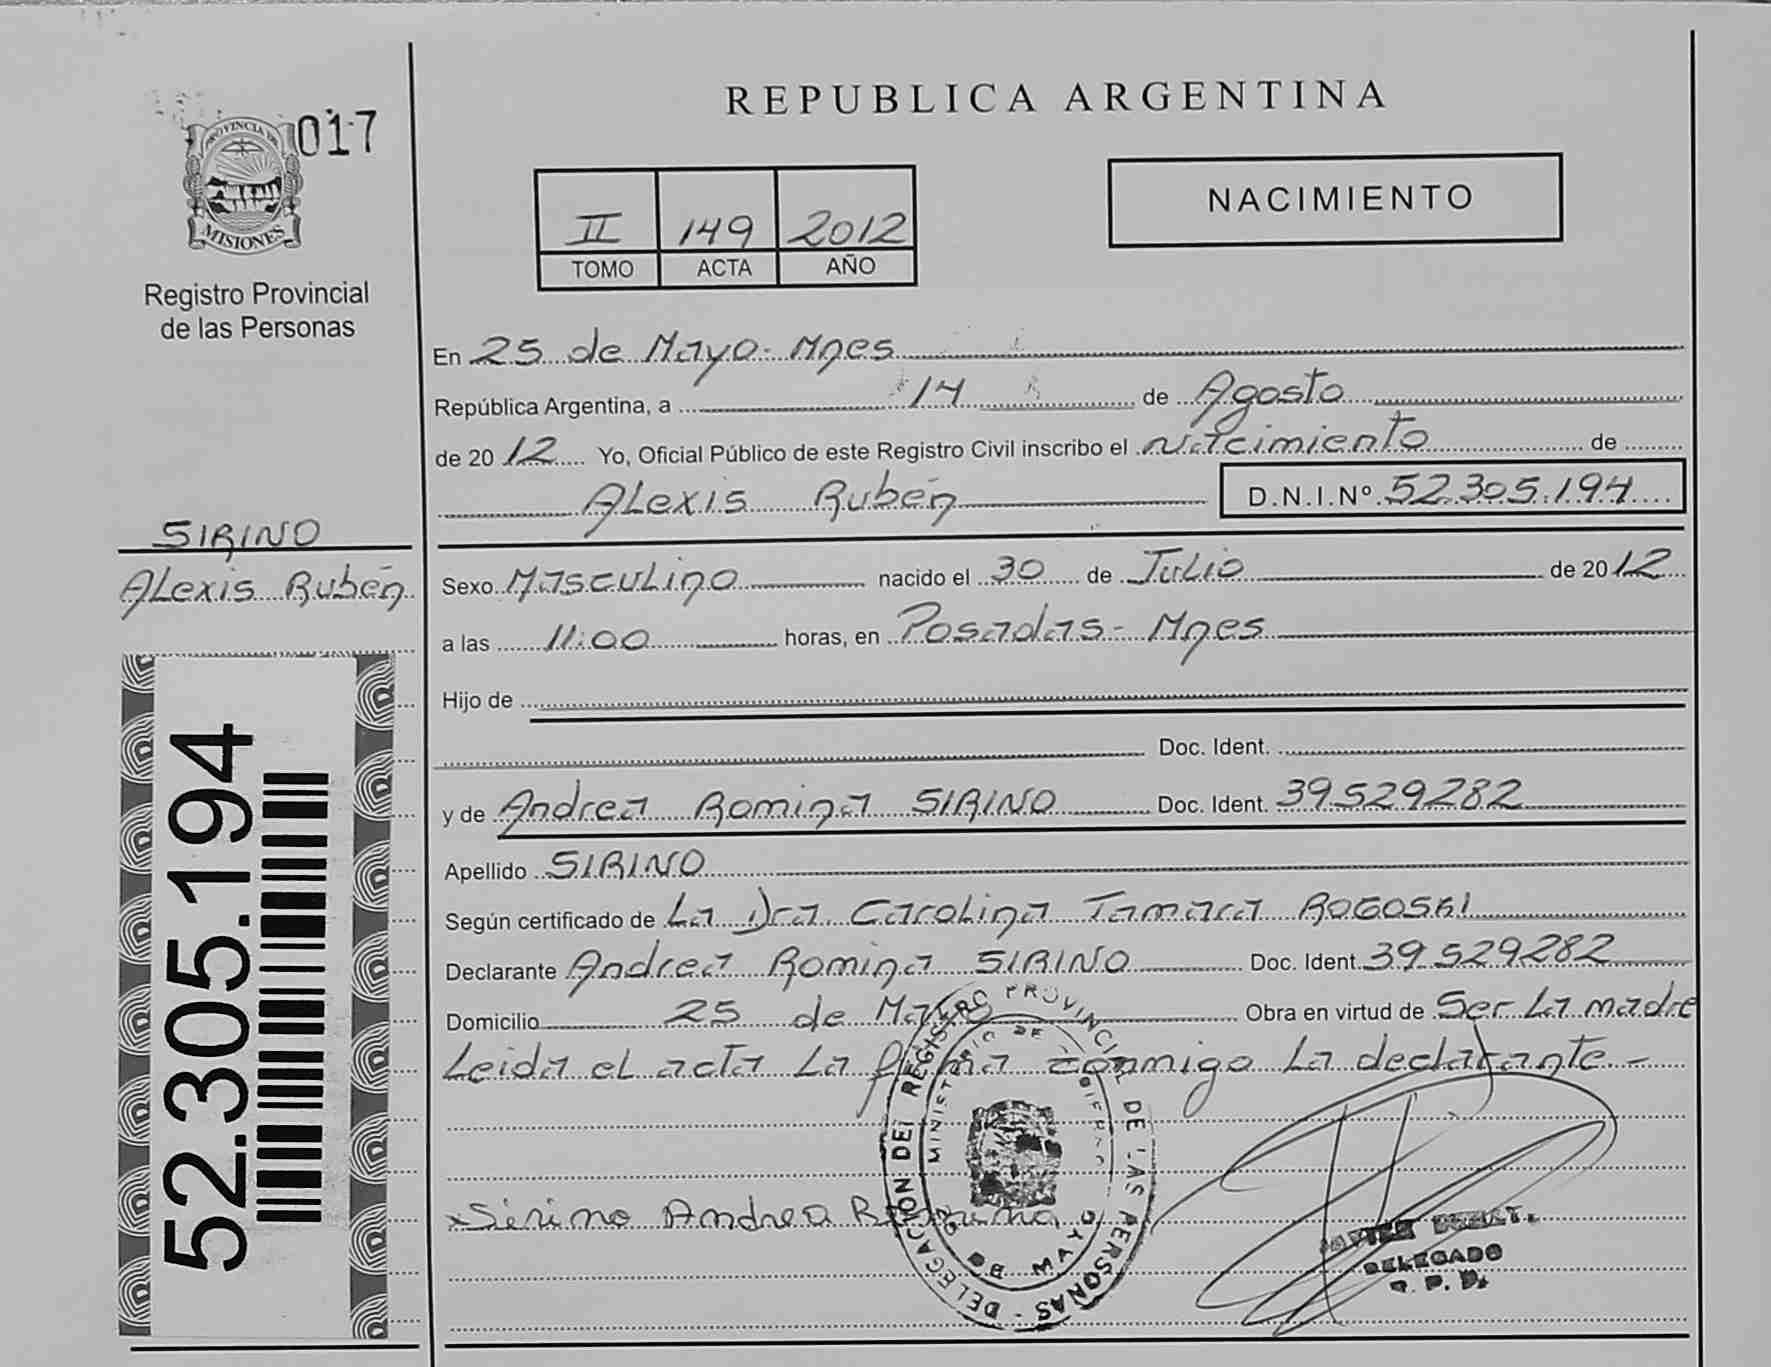 017
PROVINCIA DE
MISIONES
Registro Provincial
de las Personas
SIRINO
Alexis Rubén
52.305.194
REPUBLICA ARGENTINA
NACIMIENTO
II 149 2012
TOMO ACTA AÑO
En 25 de Mayo - Mnes
República Argentina, a 14 de Agosto
de 20 12 Yo, Oficial Público de este Registro Civil inscribo el nacimiento de
Alexis Rubén D.N.I.Nº 52.305.194
Sexo Masculino nacido el 30 de Julio de 20 12
a las 11:00 horas, en Posadas - Mnes
Hijo de
Doc. Ident.
y de Andrea Romina SIRINO Doc. Ident. 39529282
Apellido SIRINO
Según certificado de La Dra Carolina Tamara ROGOSKI
Declarante Andrea Romina SIRINO Doc. Ident. 39529282
Domicilio 25 de Mayo Obra en virtud de Ser La madre
Leida el acta La firma conmigo La declarante -
Sirino Andrea Romina
DELEGACION DEL REGISTRO PROVINCIAL DE LAS PERSONAS
MINISTERIO DE
DE MAYO
DELEGADO
R. P. P.